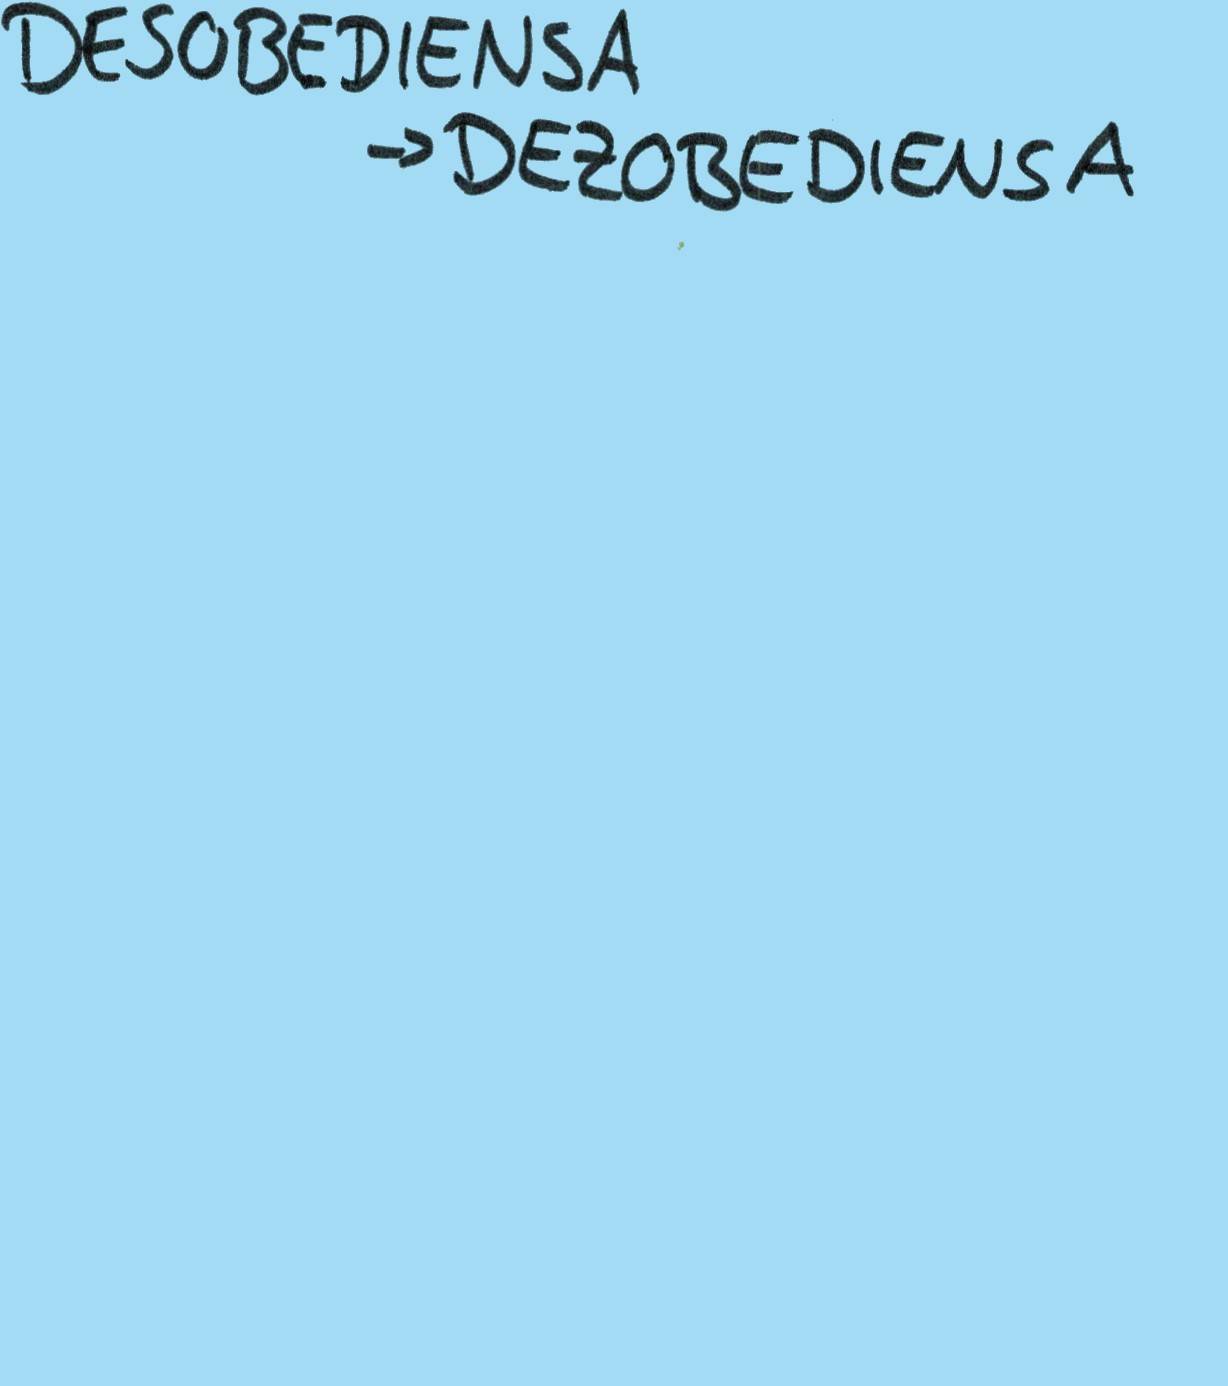 DESOBEDIENSA
→DEZOBEDIENSA